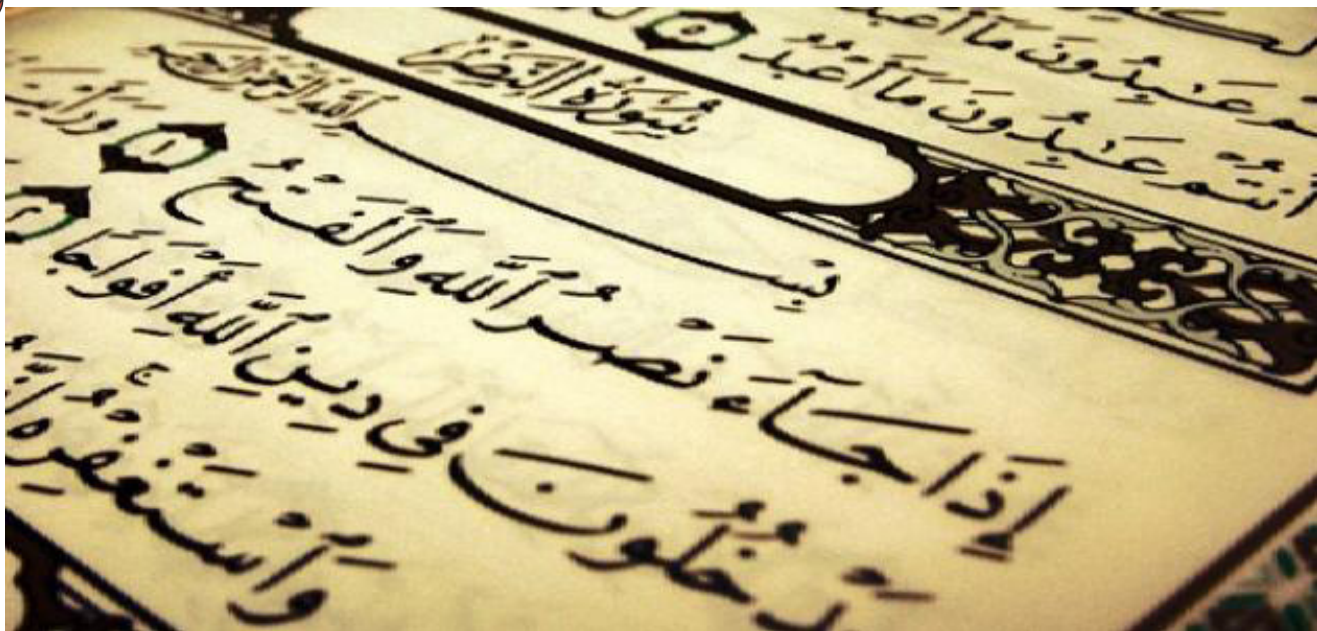 عَـٰبِدُونَ مَآ أَعْبُدُ
أَنتُمْ عَـٰبِدُونَ مَآ أَعْبُدُ ٥
سُورَةُ النَّصْرِ
بِسْمِ ٱللَّهِ ٱلرَّحْمَـٰنِ ٱلرَّحِيمِ
إِذَا جَآءَ نَصْرُ ٱللَّهِ وَٱلْفَتْحُ ١ وَرَأَيْتَ
يَدْخُلُونَ فِى دِينِ ٱللَّهِ أَفْوَاجًا ٢
وَٱسْتَغْفِرْهُ